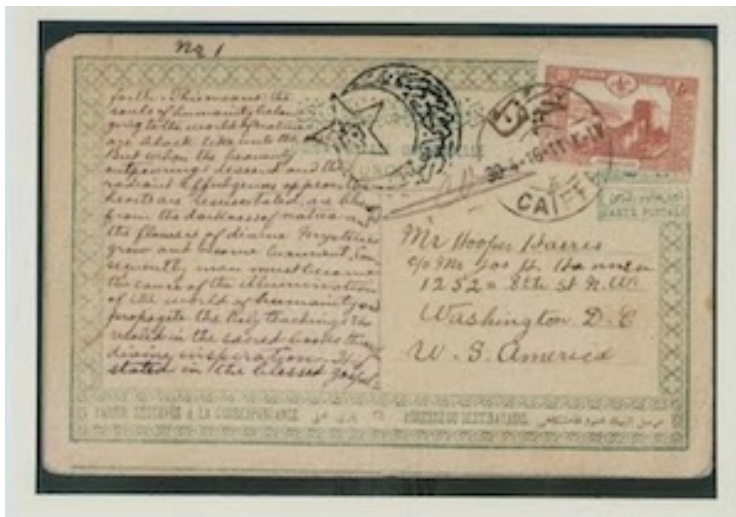 No 1
faith. This means: the
souls of humanity belon
ging to the world of nature
are black like unto the
But when the heavenly
outpourings descend and the
radiant Effulgences appear the
hearts are resuscitated, are
from the darkness of nature and
the flowers of divine mysteries
grow and become luxuriant. Con
sequently man must become
the cause of the illumination
of the world of humanity and
propagate the Holy teachings re
vealed in the sacred books through
divine inspiration. It is
stated in the blessed gospel
30-4-16-11
CAIFFA
CARTE POSTALE
Mr Hooper Harris
c/o Mr Jos H. Hannen
1252 = 8th St N. W.
Washington D. C
U. S. America
PARTIE RÉSERVÉE A LA CORRESPONDANCE
ADRESSE DU DESTINATAIRE